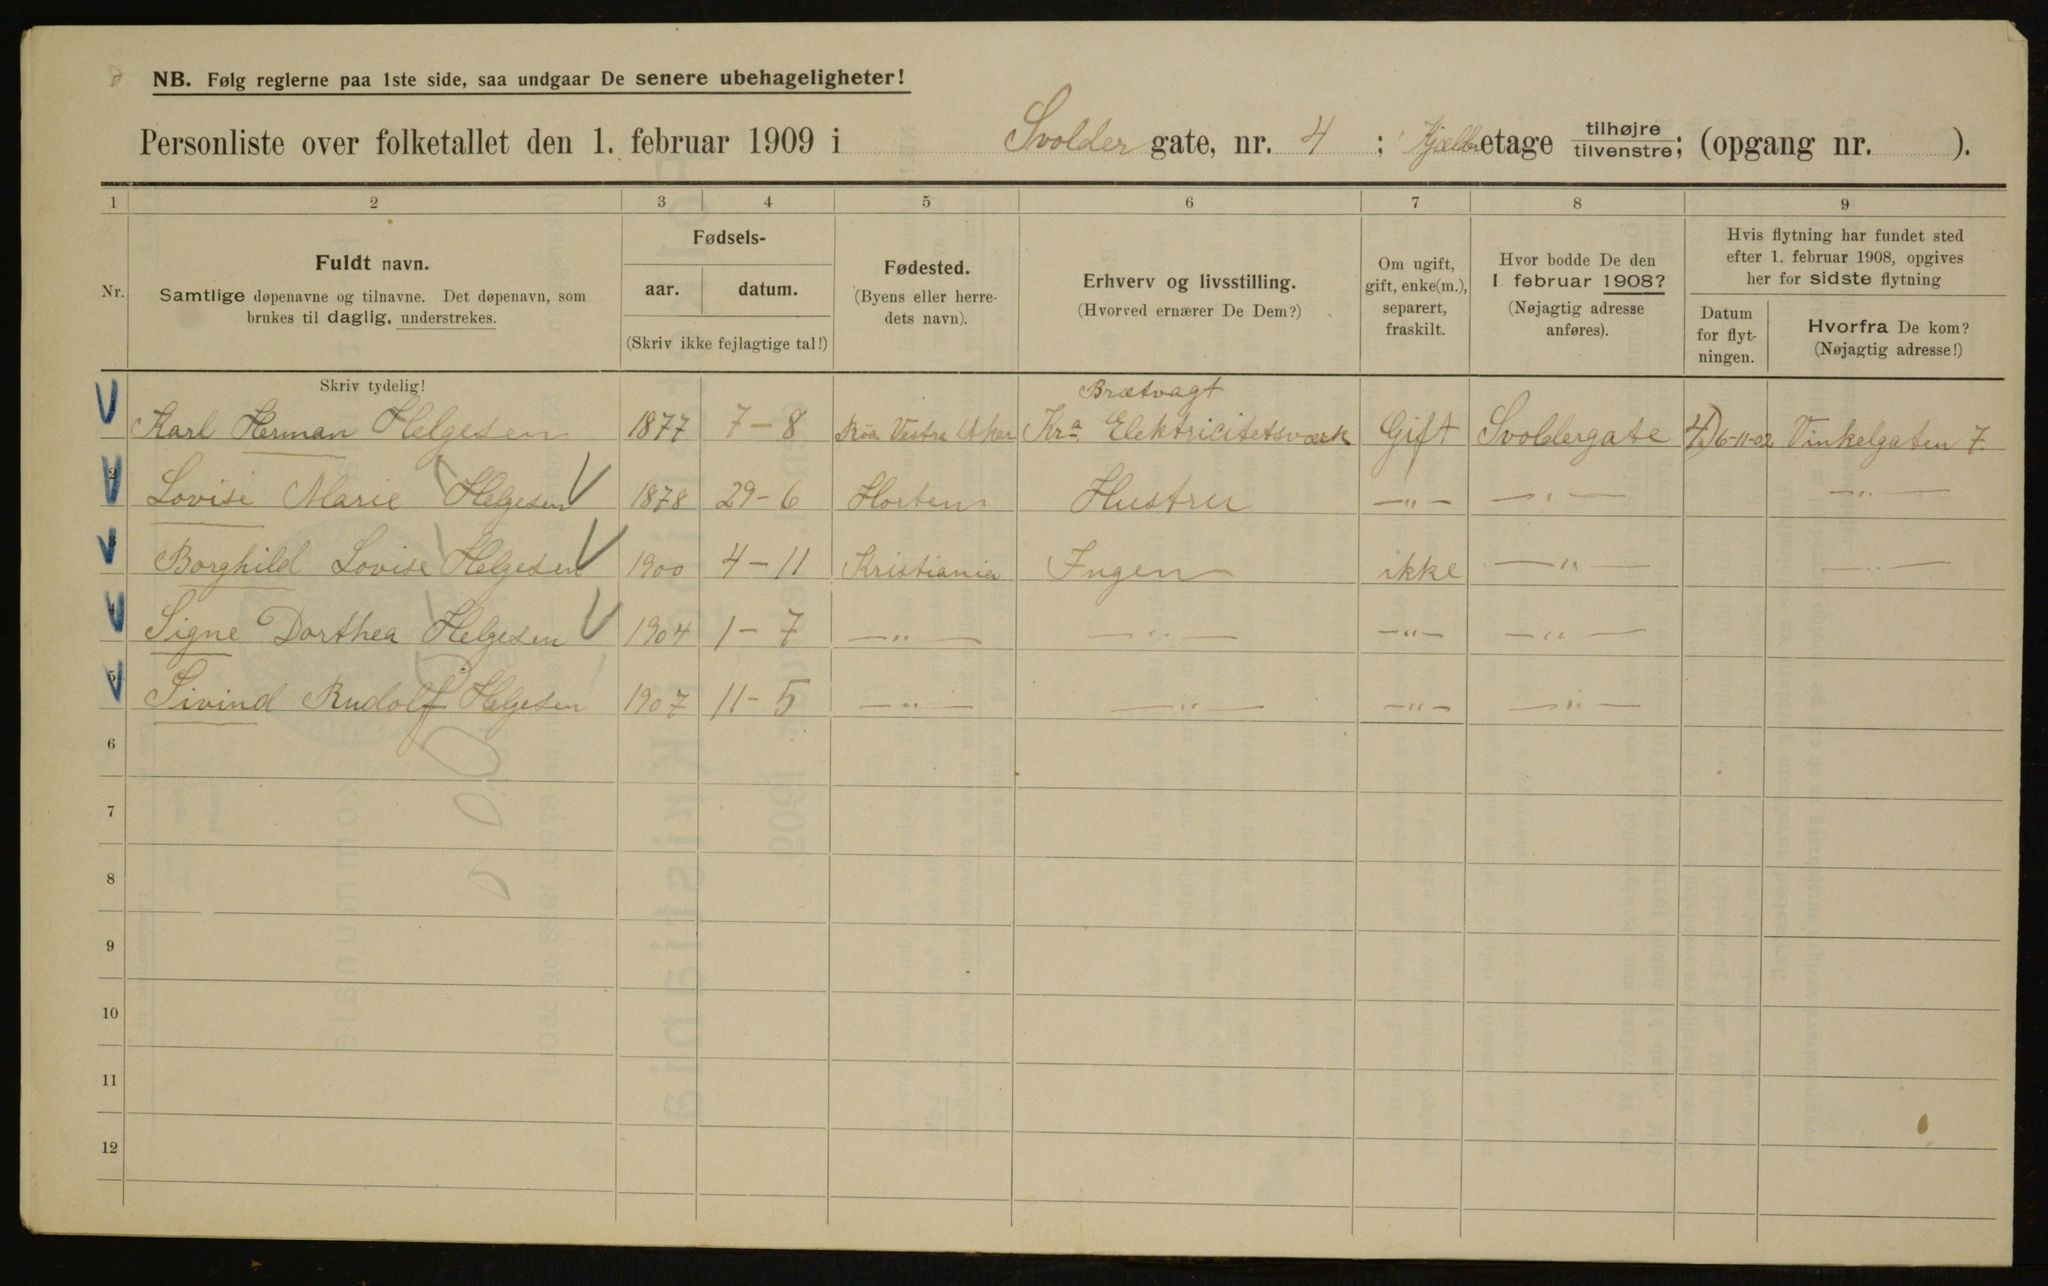 NB. Følg reglerne paa 1ste side, saa undgaar De senere ubehageligheter!
Personliste over folketallet den 1. februar 1909 i Svolder gate, nr. 4 ; Kjælder etage tilhøjre / tilvenstre; (opgang nr. ).
1 2 3 4 5 6 7 8 9
Nr.
Fuldt navn.
Samtlige døpenavne og tilnavne. Det døpenavn, som
brukes til daglig, understrekes.
Skriv tydelig!
Fødsels-
aar. datum.
(Skriv ikke fejlagtige tal!)
Fødested.
(Byens eller herre-
dets navn).
Erhverv og livsstilling.
(Hvorved ernærer De Dem?)
Om ugift,
gift, enke(m.),
separert,
fraskilt.
Hvor bodde De den
1 februar 1908?
(Nøjagtig adresse
anføres).
Hvis flytning har fundet sted
efter 1. februar 1908, opgives
her for sidste flytning
Datum
for flyt-
ningen.
Hvorfra De kom?
(Nøjagtig adresse!)
Brætvagt
Karl Herman Helgesen 1877 7-8 Röa Vestre Aker Kra Elektricitetsværk Gift Svoldergate 4 16-11-02 Vinkelgaten 7.
2 Lovise Marie Helgesen 1878 29-6 Horten Hustru -"- -"- -"-
3 Borghild Lovise Helgesen 1900 4-11 Kristiania Ingen ikke -"- -"-
4 Signe Dorthea Helgesen 1904 1-7 -"- -"- -"- -"-
5 Sivind Rudolf Helgesen 1907 11-5 -"- -"- -"- -"-
6
7
8
9
10
11
12